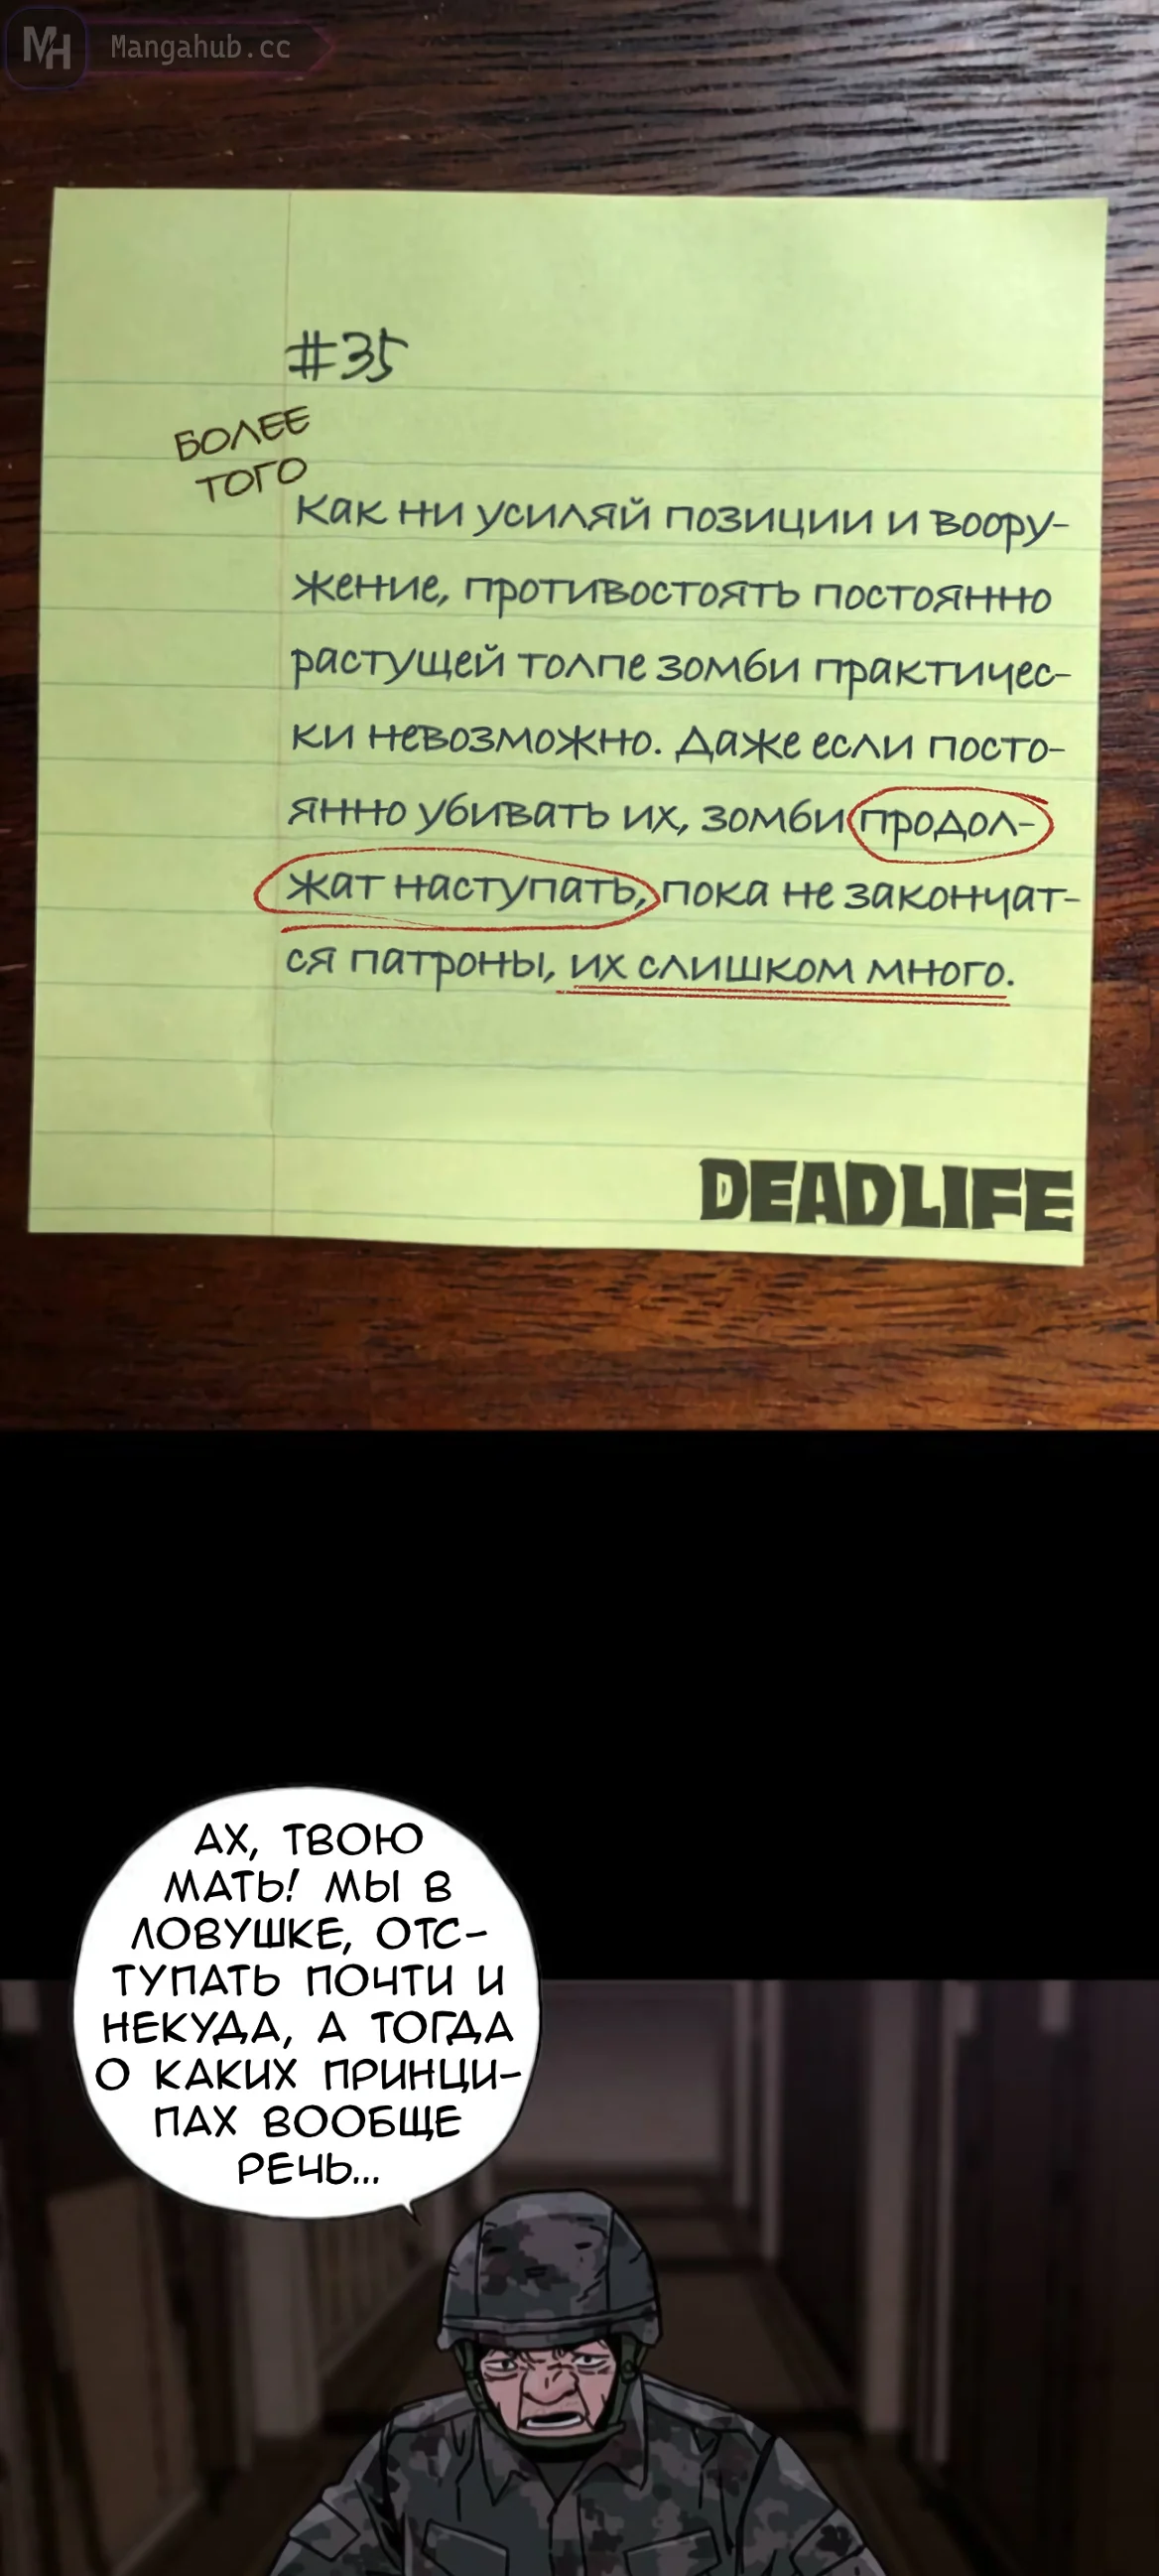 MH Mangahub.cc
#35
БОЛЕЕ
ТОГО
Как ни усиляй позиции и воору-
жение, противостоять постоянно
растущей толпе зомби практичес-
ки невозможно. Даже если посто-
янно убивать их, зомби продол-
жат наступать, пока не закончат-
ся патроны, их слишком много.
DEAD LIFE
АХ, ТВОЮ
МАТЬ! МЫ В
ЛОВУШКЕ, ОТС-
ТУПАТЬ ПОЧТИ И
НЕКУДА, А ТОГДА
О КАКИХ ПРИНЦИ-
ПАХ ВООБЩЕ
РЕЧЬ...